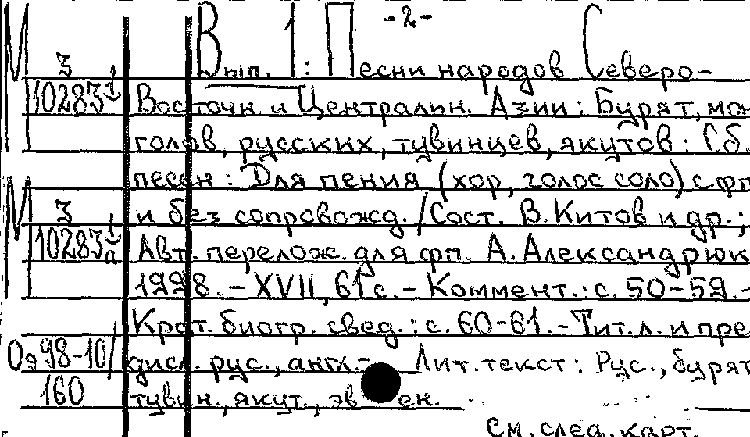 -2-
М 3 1 Вып. 1: Песни народов Северо-
10283 Восточн. и Централин. Азии: Бурят, мон
голов, русских, тувинцев, якутов: Сб.
песен: Для пения (хор, голос соло) с фп
М 3 и без сопровожд. /Сост. В. Китов и др.;
10283 Авт. перелож. для фп. А. Александрюк
1998. - XVII, 61 с. - Коммент.: с. 50-59. -
Крат. биогр. свед.: с. 60-61. - Тит. л. и пре
Оэ 98-10/ дисл. рус., англ. - Лит. текст: Рус., бурят
160 тувин., якут., эв ен.
См. след. карт.